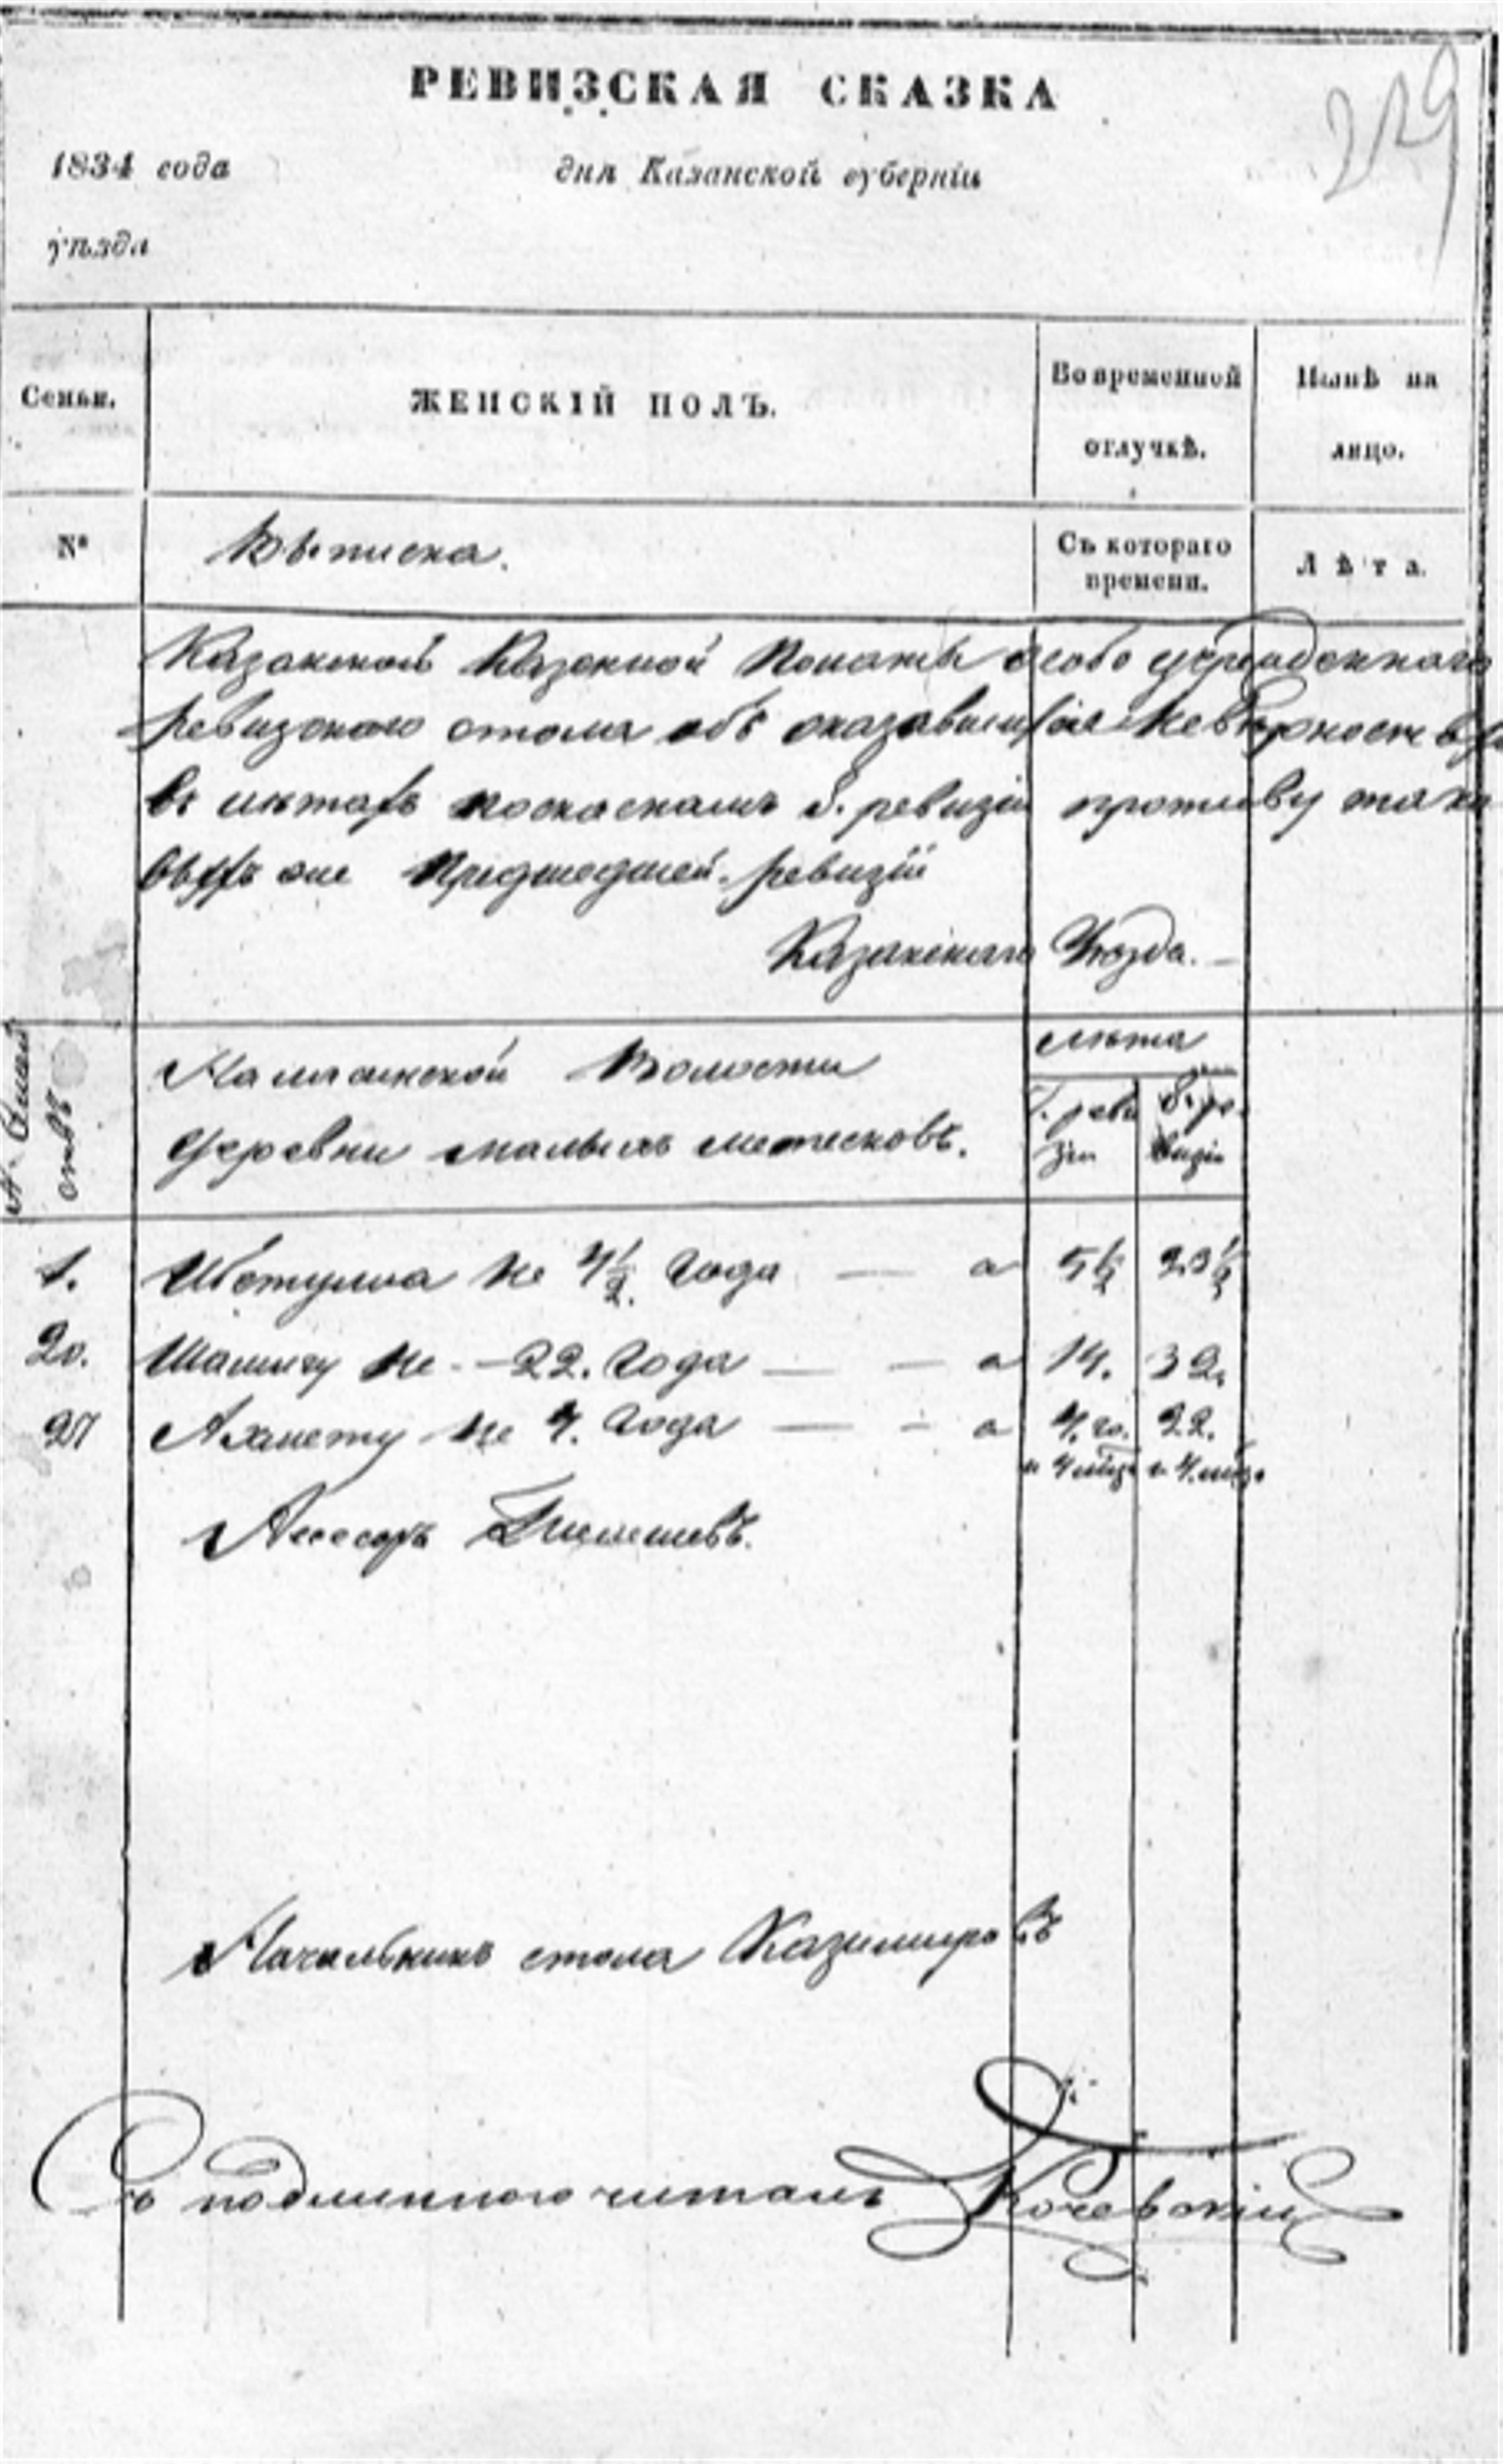 РЕВИЗСКАЯ СКАЗКА
229
1834 года
дня Казанской губерніи
уѣзда
Семьи.
ЖЕНСКІЙ ПОЛЪ.
Во временной отлучкѣ.
Нынѣ на лицо.
№
Выписка.
Съ котораго времени.
Лѣта.
Казанской Казенной Полаты особо учрежденнаго
ревизскаго стола объ оказавшихся неверностяхъ
въ летахъ поскаскамъ 8. ревизіи противу тако
выхъ же Предшедшей ревизіи
Казанскаго Уѣзда.
лѣта
Волости
деревни малыхъ метесковъ.
7. реви зіи
8. ре визіи
1. не 4 1/2 года — а 5 1/2 23 1/2
20. не - 22. года — а 14. 32.
27 Ахмету не 4. года — а 4. го. 22.
и 4 мѣс. и 4. мѣс.
Асесоръ
Начальникъ стола Казимировъ
Съ подлиннаго читалъ